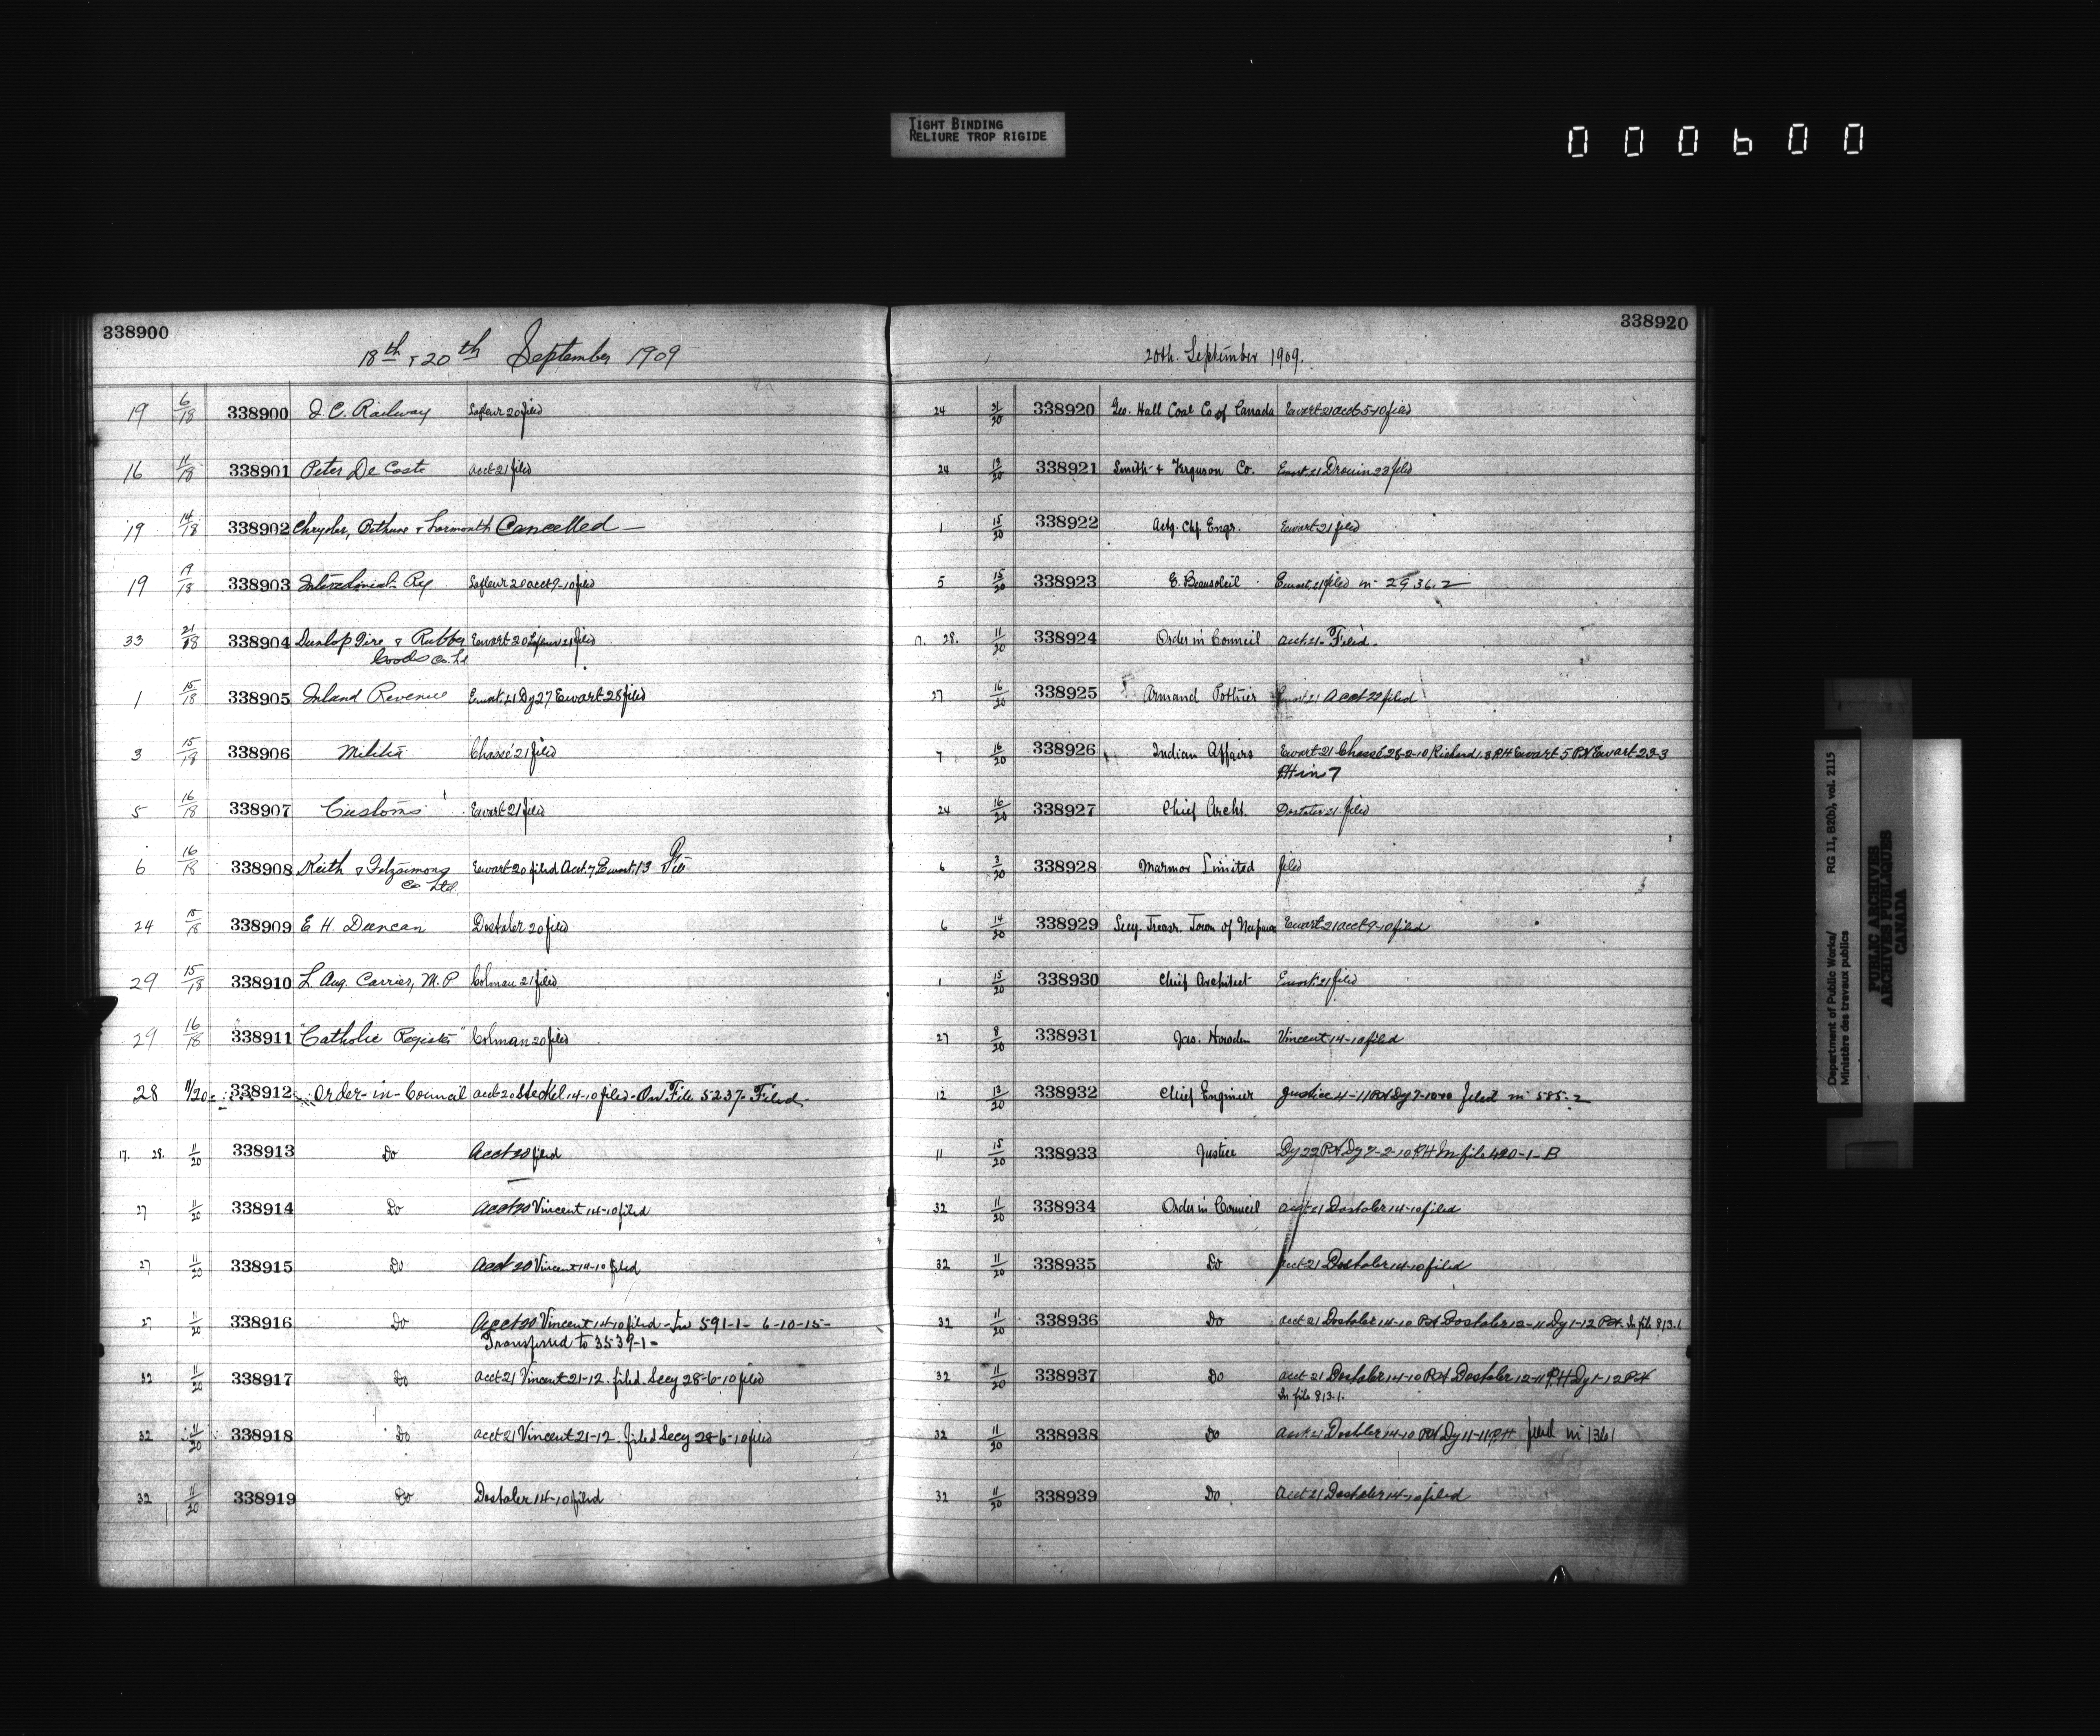 TIGHT BINDING
RELIURE TROP RIGIDE
000600
338900
18th & 20th September 1909
19 6/18 338900 I. C. Railway Lafleur 20 filed
16 11/18 338901 Peter De Coste acct 21 filed
19 14/18 338902 Chrysler, Bethune & Larmonth Cancelled —
19 19/18 338903 Intercolonial Ry Lafleur 20 acct 9-10 filed
33 21/18 338904 Dunlop Tire & Rubber Ewart 20 Lafleur 21 filed
Goods Co. Ld
1 15/18 338905 Inland Revenue Ewart 21 Dy 27 Ewart 28 filed
3 15/18 338906 Militia Chassé 21 filed
5 16/18 338907 Customs Ewart 21 filed
6 16/18 338908 Keith & Fitzsimons Ewart 20 filed Acct. 7 Ewart 13
Co Ltd.
24 15/18 338909 E H. Duncan Dostaler 20 filed
29 15/18 338910 L. Aug. Carrier, M.P Colman 21 filed
29 16/18 338911 "Catholic Register" Colman 20 filed
28 11/20 338912 Order-in-Council acct 20 Steckel 14-10 filed - On File 5237- Filed
17. 28. 11/20 338913 Do Acct 20 filed
27 11/20 338914 Do Acct 20 Vincent 14-10 filed
27 11/20 338915 Do Acct 20 Vincent 14-10 filed
27 11/20 338916 Do Acct 20 Vincent 14-10 filed - In 591-1- 6-10-15-
Transferred to 3539-1-
32 11/20 338917 Do acct 21 Vincent 21-12. filed. Secy 28-6-10 filed
32 11/20 338918 Do acct 21 Vincent 21-12. filed Secy 28-6-10 filed
32 11/20 338919 Do Dostaler 14-10 filed
338920
20th. September 1909.
24 21/20 338920 Geo. Hall Coal Co of Canada Ewart 21 acct 5-10 filed
24 19/20 338921 Smith & Ferguson Co. Ewart 21 Drouin 22 filed
1 15/20 338922 Actg. Chf. Engr. Ewart 21 filed
5 15/20 338923 E. Beausoleil Ewart 21 filed in 2936.2
17. 28. 11/20 338924 Order in Council acct. 21- Filed.
27 16/20 338925 Armand Pothier Ewart 21 Acct 22 filed
7 16/20 338926 Indian Affairs Ewart 21 Chassé 28-2-10 Richard 1.3 P.H Ewart 5 P.H Ewart 23-3
PH in 7
24 16/20 338927 Chief Archt. Dostaler 21 filed
6 3/20 338928 Marmor Limited filed
6 14/20 338929 Secy. Treasr. Town of Neepawa Ewart 21 acct 9-10 filed
1 15/20 338930 Chief Architect Ewart 21 filed
27 8/20 338931 Jas. Howden Vincent 14-10 filed
12 13/20 338932 Chief Engineer Justice 4-11 P.H Dy 7-10 filed in 585-2
11 15/20 338933 Justice Dy 22 P.H Dy 7-2-10 P.H In file 420-1-B
32 11/20 338934 Order in Council acct 21 Dostaler 14-10 filed
32 11/20 338935 Do acct 21 Dostaler 14-10 filed
32 11/20 338936 Do acct 21 Dostaler 14-10 P.H Dostaler 12-11 Dy 1-12 P.H. In file 813.1
32 11/20 338937 Do acct 21 Dostaler 14-10 P.H Dostaler 12-11 P.H Dy 1-12 P.H
In file 813.1.
32 11/20 338938 Do acct. 21 Dostaler 14-10 P.H Dy 11-11 P.H filed in 1361
32 11/20 338939 Do Acct 21 Dostaler 14-10 filed
Department of Public Works/ RG 11, B2(b), vol. 2115
Ministère des travaux publics
PUBLIC ARCHIVES
ARCHIVES PUBLIQUES
CANADA